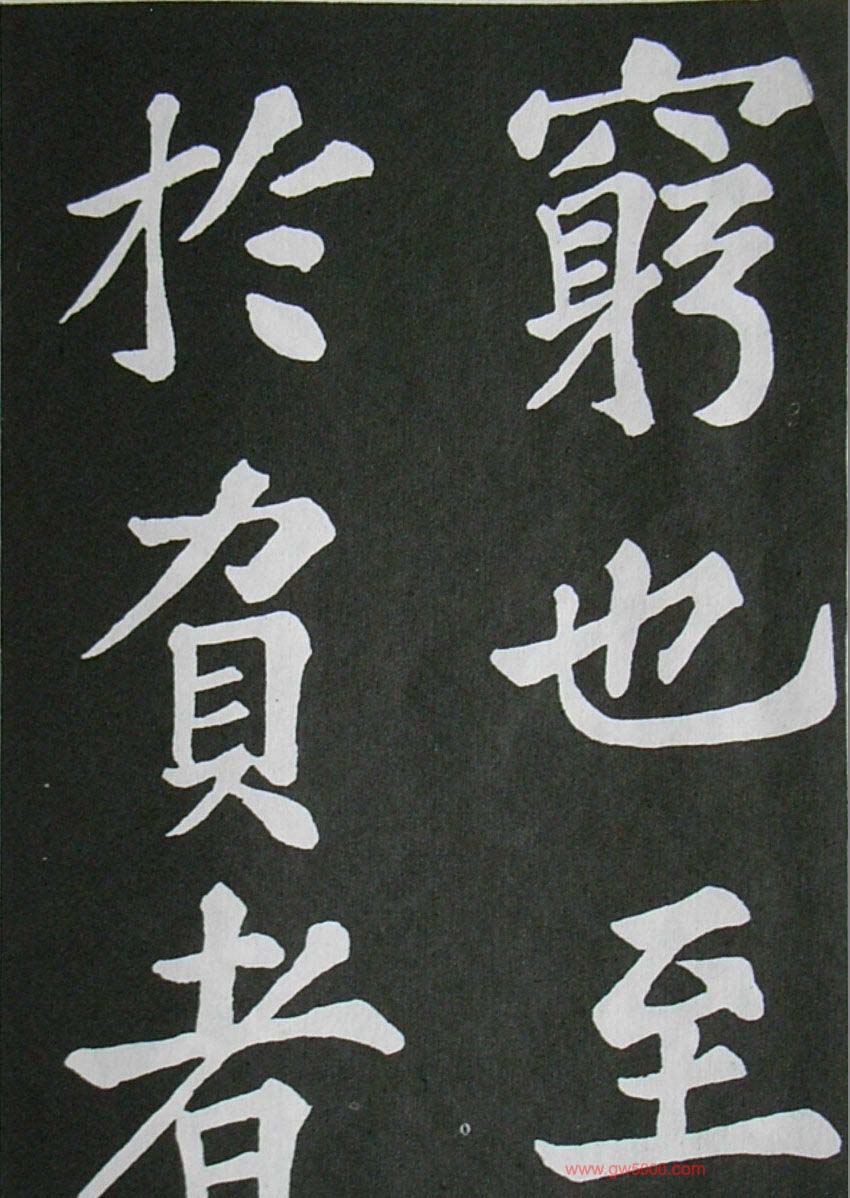 窮也至
於負者
www.gw5000.com